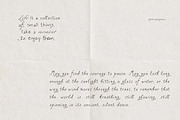 Life is a collection
of small things.
Take a moment
to enjoy them.
May you find the courage to pause. May you look long
enough at the sunlight hitting a glass of water, or the
way the wind moves through the trees, to remember that
the world is still breathing, still glowing, still
spinning in its ancient, silent dance.